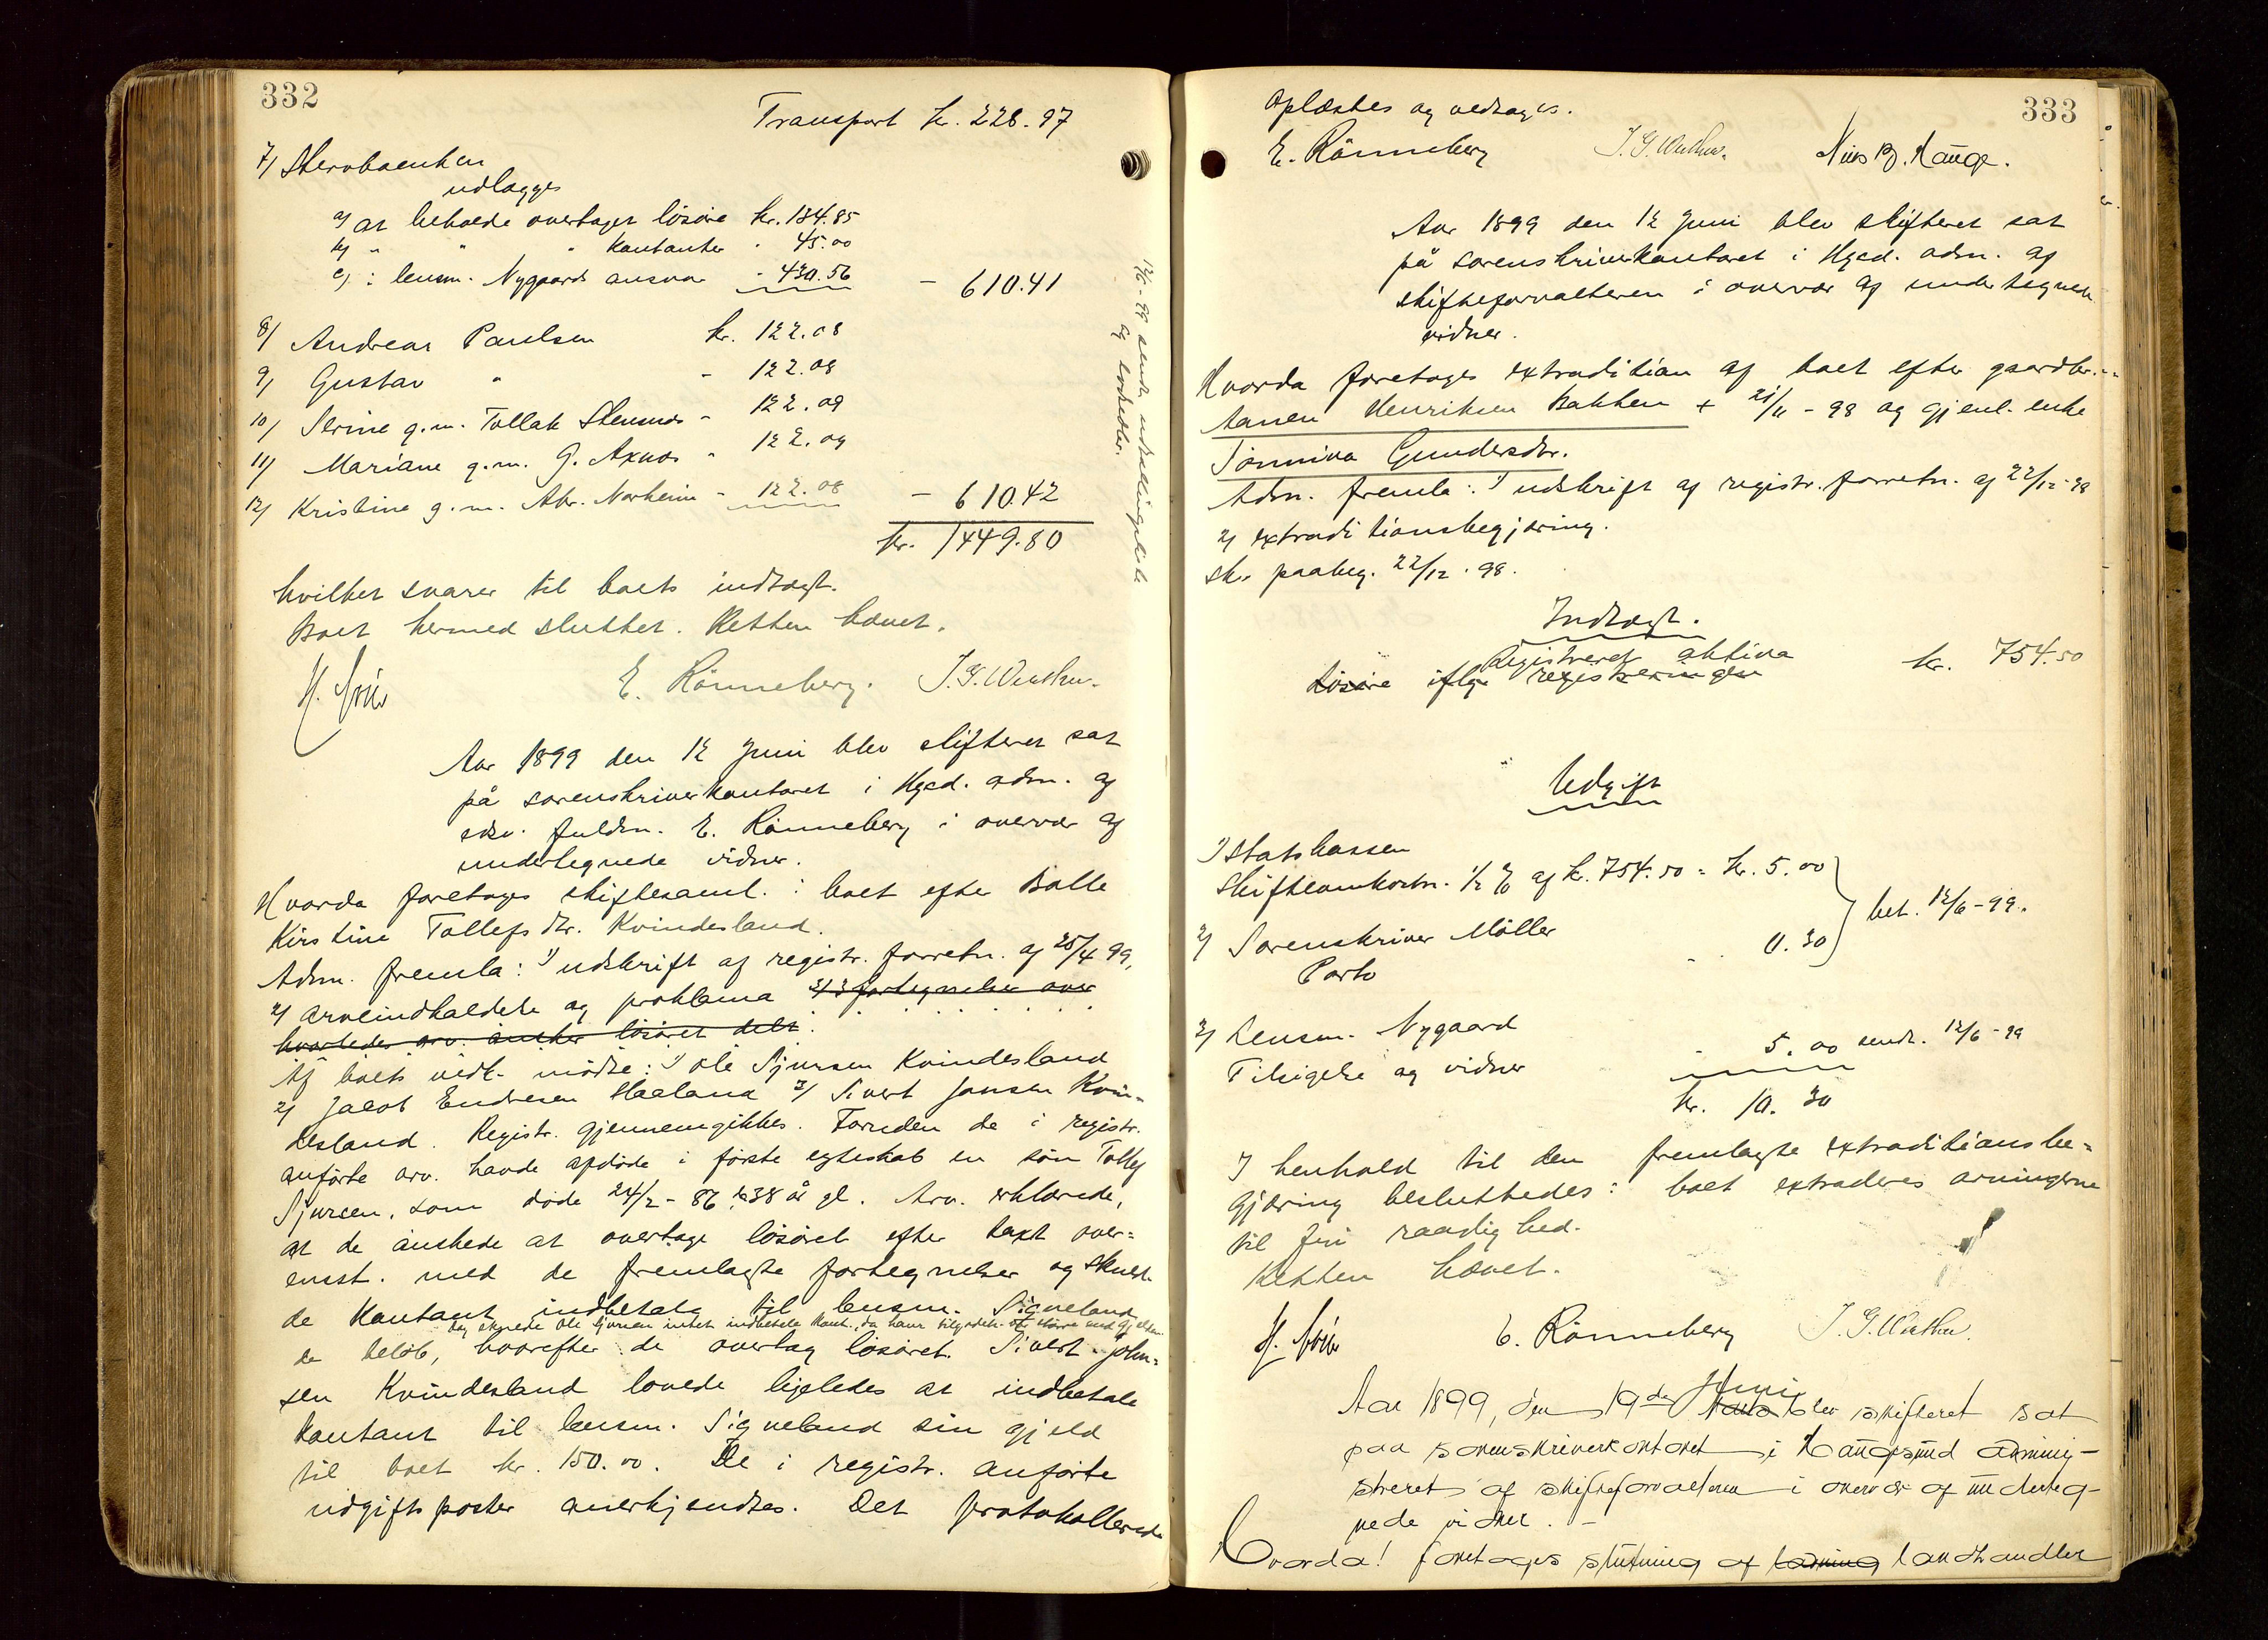 332
Transport kr. 228.97
7/ Stervboenken
udlægges
a/ at beholde overtaget løsøre kr. 134.85
b/ " " " kontanter " 45.00
c/ i lensm. Nygaards ansvar - 430.56 - 610.41
8/ Andreas Paulsen kr. 122.08
9/ Gustav " - 122.08
10/ Serine g.m. Tollak Stensnes - 122.09
11/ Mariane g.m. G. Axnes - 122.09
12/ Kristine g.m. Abr. Norheim - 122.08 - 610.42
kr. 1449.80
12/6-99 sendt udlodningsliste
og lodsedler.
hvilket svarer til boets indtægt.
Boet hermed sluttet. Retten hævet.
E. Rönneberg. J.G.Wershu.
Aar 1899 den 12 Juni blev skifteret sat
på sorenskriverkontoret i Hgsd. adm. af
edsv. fuldm. E. Rönneberg i overvær af
undertegnede vidner.
Hvorda foretoges skiftesaml. i boet efter Bolle
Kirstine Tollefsdtr. Kvindesland.
Adm. fremla: 1/ udskrift af registr. forretn. af 25/4 99,
2/ arveindkaldelse og proklama 3/ 3 fortegnelser over
hvorledes arv. ønsker løsøret delt.
Af boets vedk. mødte: 1/ Ole Sjursen Kvindesland
2/ Jacob Endresen Haaland 3/ Sivert Jonsen Kvin-
desland. Registr. gjennemgikkes. Foruden de i registr.
anførte arv. havde afdøde i første egteskab en søn Tollef
Sjursen, som døde 24/2-86, 38 år gl. Arv. erklærede,
at de ønskede at overtage løsøret efter taxt over-
ensst. med de fremlagte fortegnelser og skulde
de kontant indbetale til lensm. Signeland
dog skulde Ole Sjursen intet indbetale kont., da hans tilgodeh. er større end gjelden
de beløb, hvorefter de overtog løsøret. Sivert John-
sen Kvindesland lovede ligeledes at indbetale
kontant til lensm. Signeland sin gjeld
til boet kr. 150.00. De i registr. anførte
udgiftsposter anerkjendtes. Det protokollerede
333
oplæstes og vedtoges.
E. Rönneberg J.G.Wershu. Nils B. Hauge.
Aar 1899 den 12 Juni blev skifteret sat
på sorenskriverkontoret i Hgsd. adm. af
skifteforvalteren i overvær af undertegnede
vidner.
Hvorda foretoges extradition af boet efter gaardbr.
Aanen Henriksen Bakken + 21/11-98 og gjenl. enke
Tønnina Gundersdtr.
Adm. fremla: 1/ udskrift af registr. forretn. af 22/12-98
2/ extraditionsbegjæring.
Sk. paabeg. 22/12.98.
Indtægt.
Registreret aktiva
Løsøre iflg. registreringen kr. 754.50
Udgift
1/ Statskassen
Skifteomkostn. 1/2 % af kr. 754.50 = kr. 5.00
2/ Sorenskriver Møller
Porto - 0.30
bet. 12/6-99.
3/ Lensm. Nygaard
Tilsigelse og vidner - 5.00 sendt. 12/6-99
kr. 10.30
I henhold til den fremlagte extraditionsbe-
gjæring besluttedes: boet extraderes arvingerne
til fri raadighed.
Retten hævet.
E. Rönneberg J.G.Wershu.
Aar 1899, den 19de Marts Juni blev skifteret sat
paa sorenskriverkontoret i Haugesund admini-
streret af skifteforvalteren i overvær af underteg-
nede vidner. -
Hvorda! foretoges slutning af landhandler